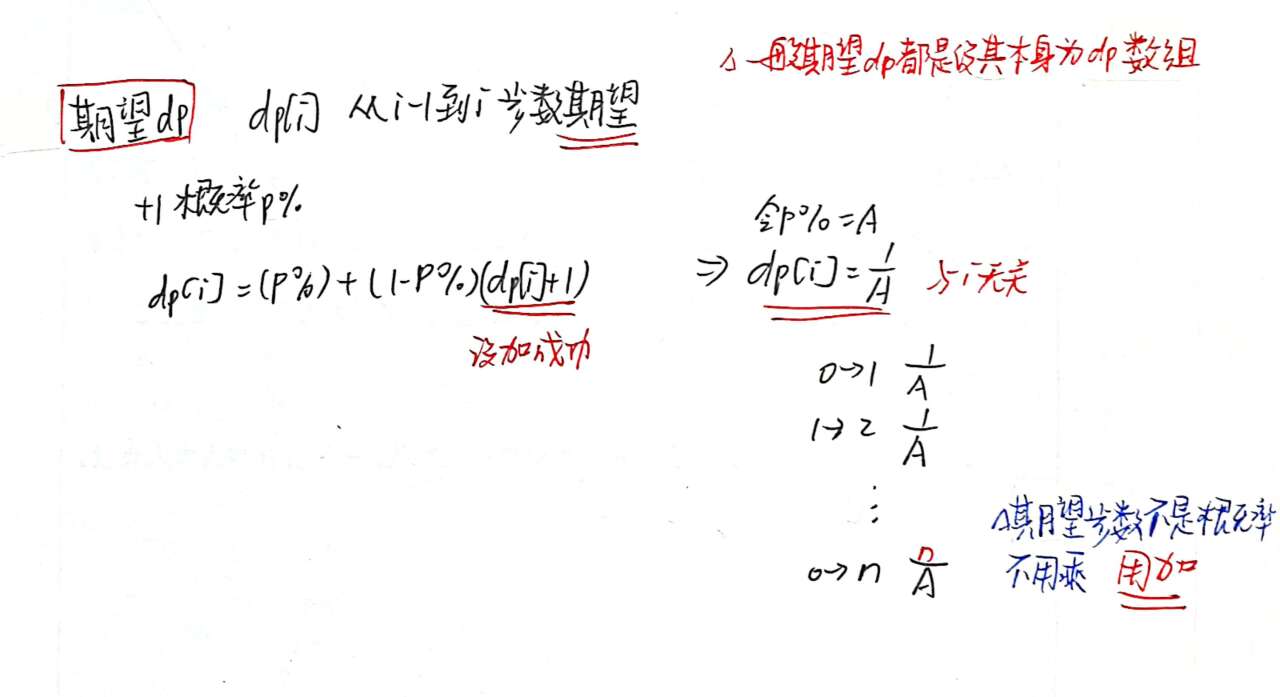 △一般期望dp都是设其本身为dp数组
期望dp dp[i] 从i-1到i步数期望
+1概率p%
dp[i]=(P%)+(1-P%)(dp[i]+1)
没加成功
令p%=A
⇒ dp[i]=1/A 与i无关
0→1 1/A
1→2 1/A
⋮
0→n n/A
△期望步数不是概率
不用乘 用加